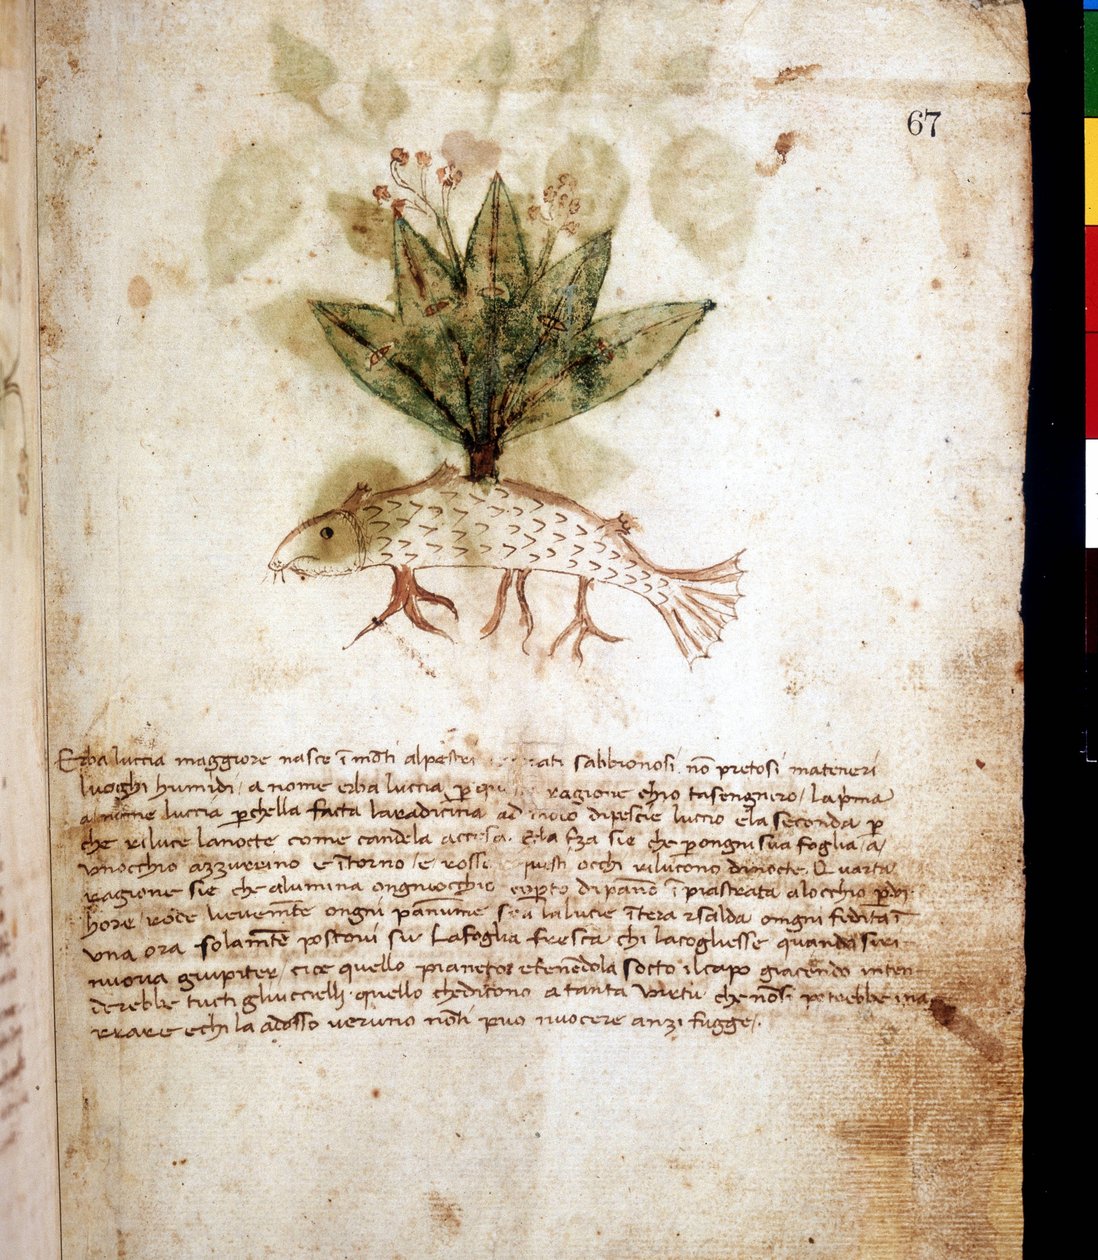 67
Erba luccia maggiore nasce ī mōti alpestri ati sabbionosi nō pretosi materieri
luoghi humidi / a nome erba luccia ragione chio tasengniero / lapma
luccia pchella facta laradicina ad dipescie luccio ela seconda p
che riluce lanocte come candela accesa. Ela fza sie che pongni sua foglia / a /
vnocchio azzurrino e ītorno / e rossi questi occhi rilucono dinocte. Quarta
ragione sie che alumina ongniocchio copto di pāno ī piastrata alocchio pdi
hore lievemēte ongni pānume lalucie ītera rsalda omgni fidita ī
vna ora solamēte postovi su Lafoglia fresca chi lacogliesse quando
nuova giupiter / cice quello pianeto efenēdola sotto ilcapo giacendo inten
derebbe tucti gliuccielli quello chedicono atanta virtu che nōsi potrebbe ina
rrare echi la adosso veruno nōti puo nuocere anzi fugge.